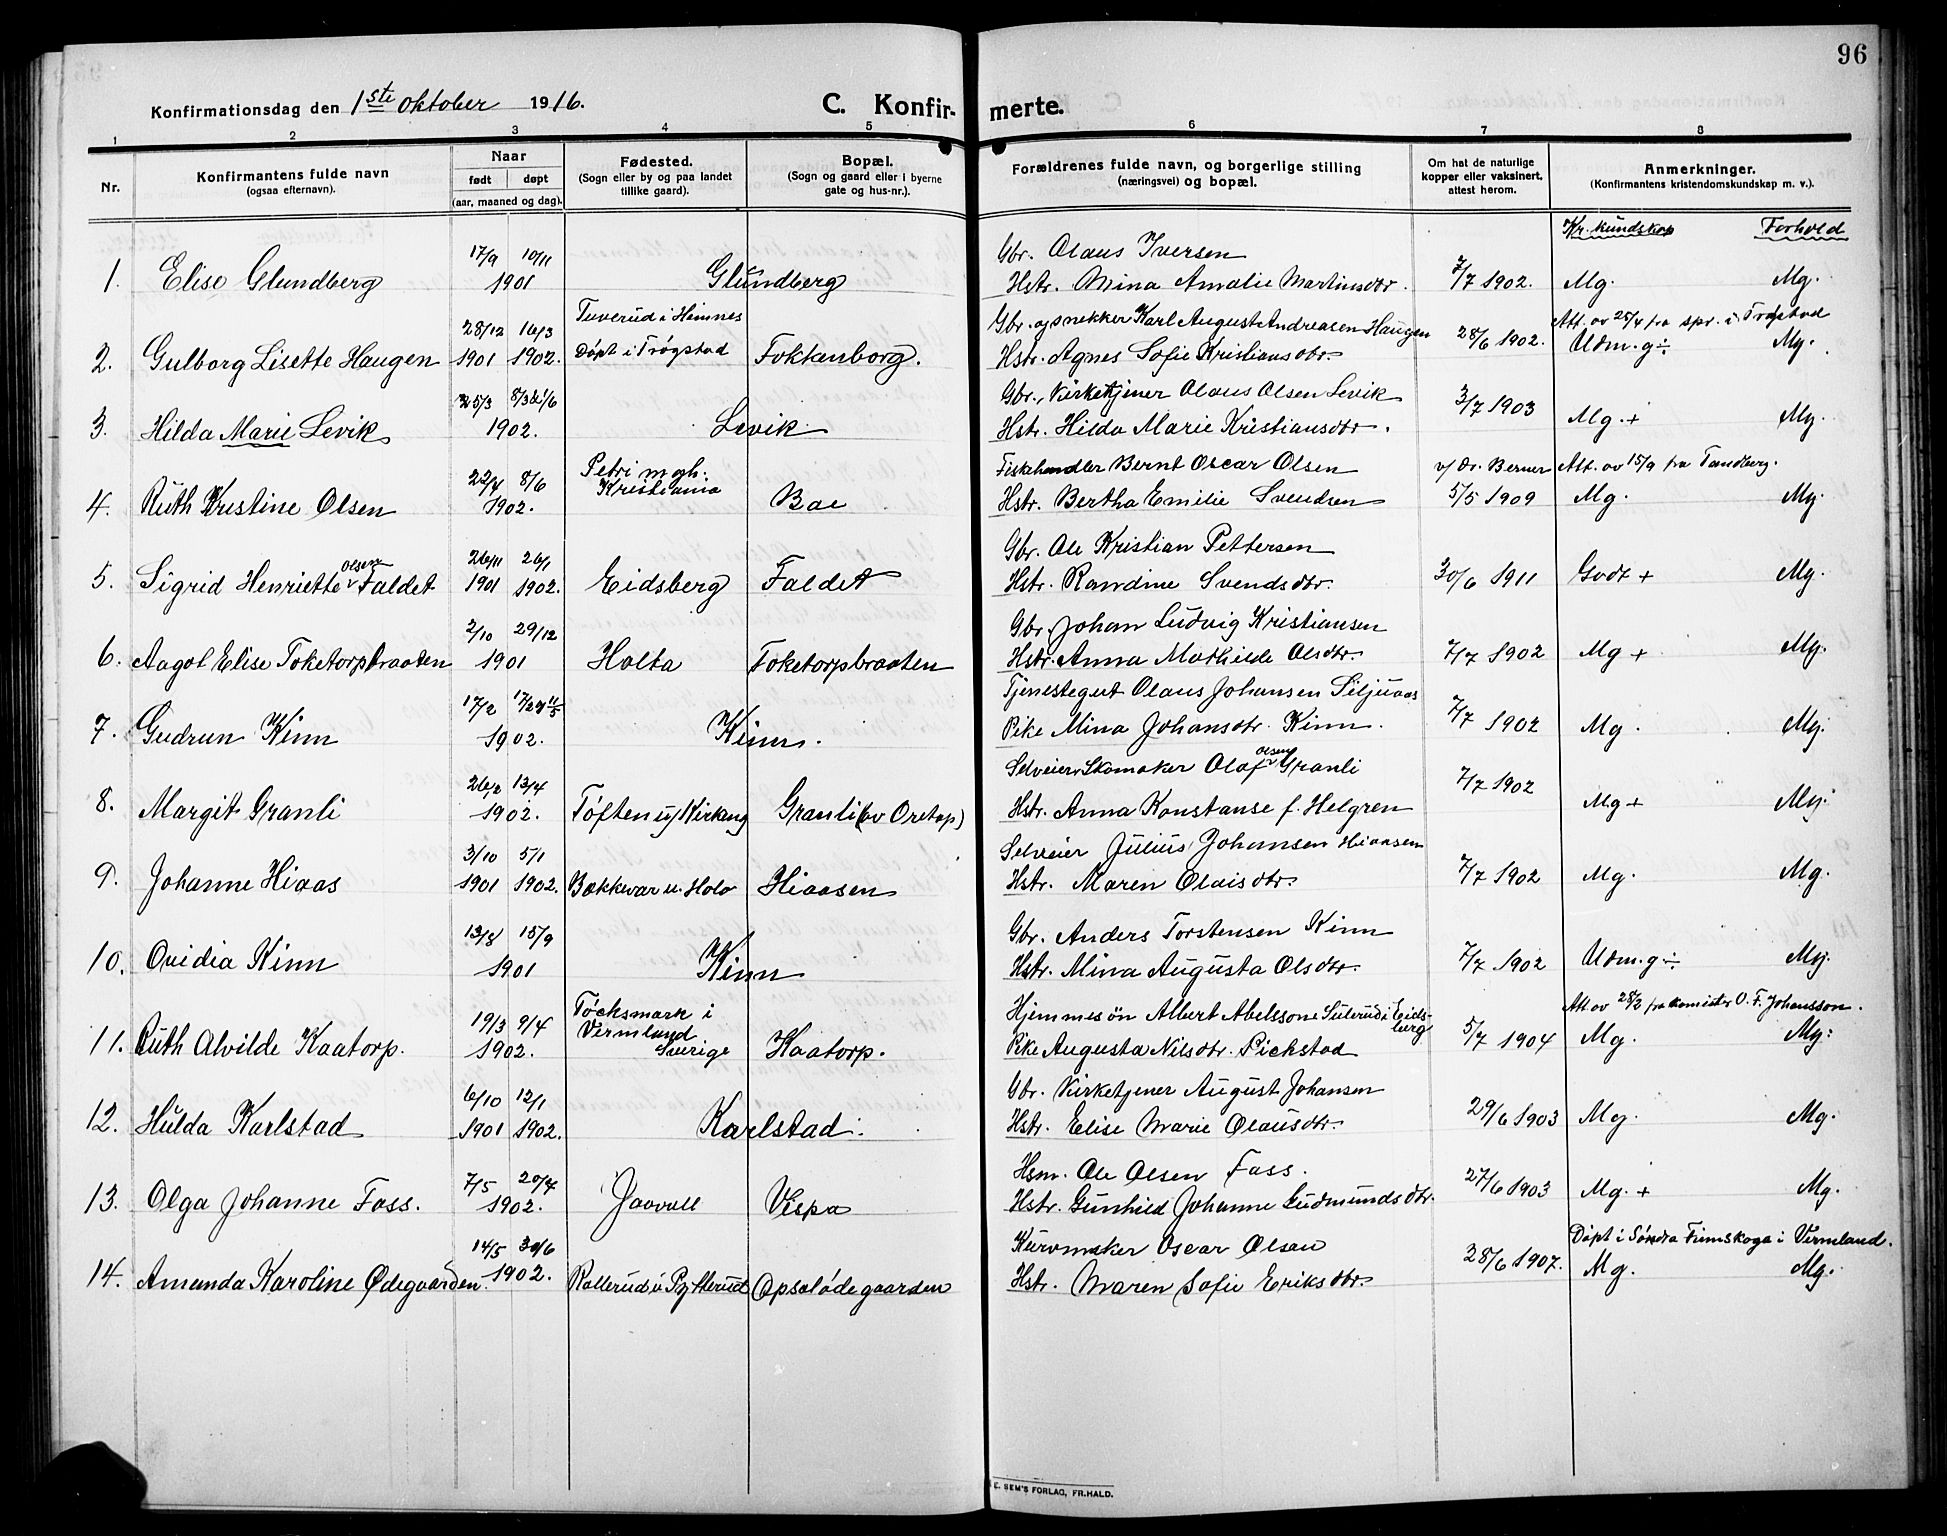 96
Konfirmationsdag den 1ste oktober 1916. C. Konfirmerte.
1 2 3 4 5 6 7 8
Nr.
Konfirmantens fulde navn
(ogsaa efternavn).
Naar
født døpt
(aar, maaned og dag).
Fødested.
(Sogn eller by og paa landet
tillike gaard).
Bopæl.
(Sogn og gaard eller i byerne
gate og hus-nr.).
Forældrenes fulde navn, og borgerlige stilling
(næringsvei) og bopæl.
Om hat de naturlige
kopper eller vaksinert,
attest herom.
Anmerkninger.
(Konfirmantens kristendomskundskap m. v.).
Kr. kundskap Forhold
17/9 10/11 Gbr. Olaus Iversen
1. Elise Glundberg 1901 Glundberg Hstr. Mina Amalie Martinsdtr. 7/7 1902. Mg. Mg.
28/12 16/3 Tuverud i Hemnes Gbr. og snekker Karl August Andreasen Haugen Att. av 25/4 fra spr. i Trøgstad
2. Gulborg Lisette Haugen 1901 1902. Døpt i Trøgstad Foktanborg. Hstr. Agnes Sofie Kristiansdtr. 28/6 1902. Udm. g÷ Mg.
25/3 8/3 Gbr., Virketjener Olaus Olsen Levik
3. Hilda Marie Levik 1902. Levik Hstr. Hilda Marie Kristiansdtr. 3/7 1903 Mg. + Mg.
22/4 8/6 Petri mgh. Kristiania Fiskehandler Bernt Oscar Olsen v/ Dr. Berner Att. av 15/9 fra Tandberg.
4. Ruth Kristine Olsen 1902. Bae Hstr. Bertha Emilie Svendsen 5/5 1909 Mg. Mg.
26/11 26/1 Gbr. Ole Kristian Pettersen
5. Sigrid Henriette Olsen Faldet 1901 1902. Eidsberg Faldet Hstr. Randine Svendsdtr. 30/6 1911 Godt + Mg.
2/10 29/12 Gbr. Johan Ludvig Kristiansen
6. Aagot Elise Toketorpbraaten 1901 Holta Toketorpbraaten Hstr. Anna Mathilde Olsdtr. 7/7 1902 Mg + Mg.
17/2 Tjenestegut Olaus Johansen Siljuaas
7. Gudrun Kinn 1902. Kinn. Pike Mina Johansdtr. Kinn. 7/7 1902 Mg. Mg.
26/2 13/4 Selveier, Skomaker Olaf Olsen Granli
8. Margit Granli 1902. Tøften u/ Kirkeng Granli (av Oretop) Hstr. Anna Konstanse f. Helgren 7/7 1902 Mg + Mg.
3/10 5/1 Selveier Julius Johansen Hiaasen
9. Johanne Hiaas 1901 1902. Bækkevar u. Holo Hiaasen Hstr. Maren Olaisdtr. 7/7 1902 Mg. Mg.
13/8 15/9 Gbr. Anders Torstensen Kinn
10. Ovidia Kinn 1901 Kinn Hstr. Mina Augusta Olsdtr. 7/7 1902 Udm. g÷ Mg.
19/3 9/4 Tøcksmark i Vermland Sverige Hjemmesøn Albert Abelssone Suterud i Eidsberg Att av 28/2 fra komister O. F. Johansson.
11. Ruth Alvilde Kaatorp. 1902. Kaatorp. Pike Augusta Nilsdtr. Pickstad 5/7 1904 Mg. Mg.
6/10 12/1 Gbr. Virketjener August Johansen
12. Hulda Karlstad 1901 1902. Karlstad. Hstr. Elise Marie Olausdtr. 29/6 1903 Mg. Mg.
7/5 20/4 Hsm. Ole Olsen Fass.
13. Olga Johanne Fass. 1902. Jaavall Vespa Hstr. Gunhild Johanne Gudmundsdtr. 27/6 1903 Mg. + Mg.
14/5 30/6 Kurvmaker Oscar Olsen Døpt i Søndra Finnskoga i Vermland.
14. Amanda Karoline Ødegaarden 1902. Rallerud i Pytterud Opsalødegaarden Hstr. Maren Sofie Eriksdtr. 28/6 1907. Mg. Mg.
E. SEM'S FORLAG, FR.HALD.